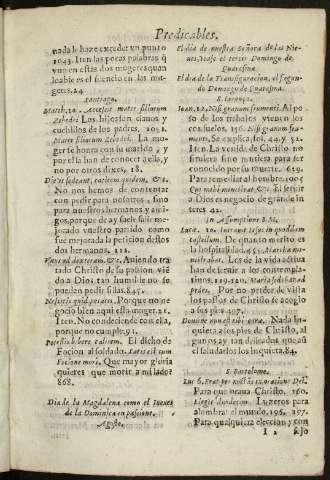 Predicables.
nada le haze exceder vn punto
1043. Iten las pocas palabras q̃
vuo en estas dos mugeres quan
loable es el silencio en las mu-
geres. 24.
Santiago.
Math. 20. Accessit mater filiorum
Zebedei. Los hijos son clauos y
cuchillos de los padres, 1091.
Mater filiorum Zebedei. La mu-
ger se honra con su marido, y
por ella han de conocer a ella, y
no por otros dixes, 18.
Dic vt sedeant, vacient ordem, &c.
No nos hemos de contentar
con pedir para nosotros, sino
para nuestros humanos y ami-
gos, porque de ay suele salir me-
jorado vuestro partido como
fue mejorada la peticion destos
dos hermanos, 111.
Vnus ad dexteram, &c. Auiendo tra
tado Christo de su passion viẽ-
do a Dios tan humilde no se
pueden pedir sillas. 847.
Nescitis quid petatis. Porque no ne
gocio bien aqui esta muger. 21.
Iten. No condeciende con ella,
porque no cumple, 9.
Potestis bibere calicem. El dicho de
Focion, al soldado.
Focione mori. Que mayor gloria
quieres que morir a mi lado?
868.
Dia de la Magdalena como el Iueues
de la Dominica in passione.
Agosto.
El dia de nuestra Señora de las Nie-
ues, vease el tercer Domingo de
Quaresma.
El dia de la Transfiguracion, el segun-
do Domingo de Quaresma.
S. Lorenço.
Ioan. 12. Nisi granum frumenti. Al pe-
so de los trabajos vienen los
consuelos, 156. Nisi granum fru-
mentū. Se explica, fol. 44. y 52.
Iten. La venida de Christo no
fuera sino mortificado para ser
conocido por su muerte. 619.
Para remediar al hombre. 100 5
Qui mihi ministrat, &c. El seruir
a Dios es negocio de grande in
teres 42.
In Assumptione B. M.
Luca. 10. Intrauit Iesus in quoddam
castellum. De quanto merito es
la hospitalidad. 451. Martha mi-
nistrabat. Los de la vida actiua
han de seruir a los contempla-
tiuos. 119. 120. Maria sedebat ad
pedes. Por no perder de vista
los passos de Christo se acogio
a sus pies. 497.
Domine non est tibi curæ. Nada in-
quieta a los pies de Christo, al
gunos ay tan delicados que aũ
el saludarlos los inquieta. 84.
S. Bartolome.
Luc 6. Erat pernoctās in oratione Dei.
Para que oraua Christo. 160.
Elegit duodecim. Luzeros para
alombrar el mundo. 196. 297.
Para qualquiera eleccion y con
I 2 sejo